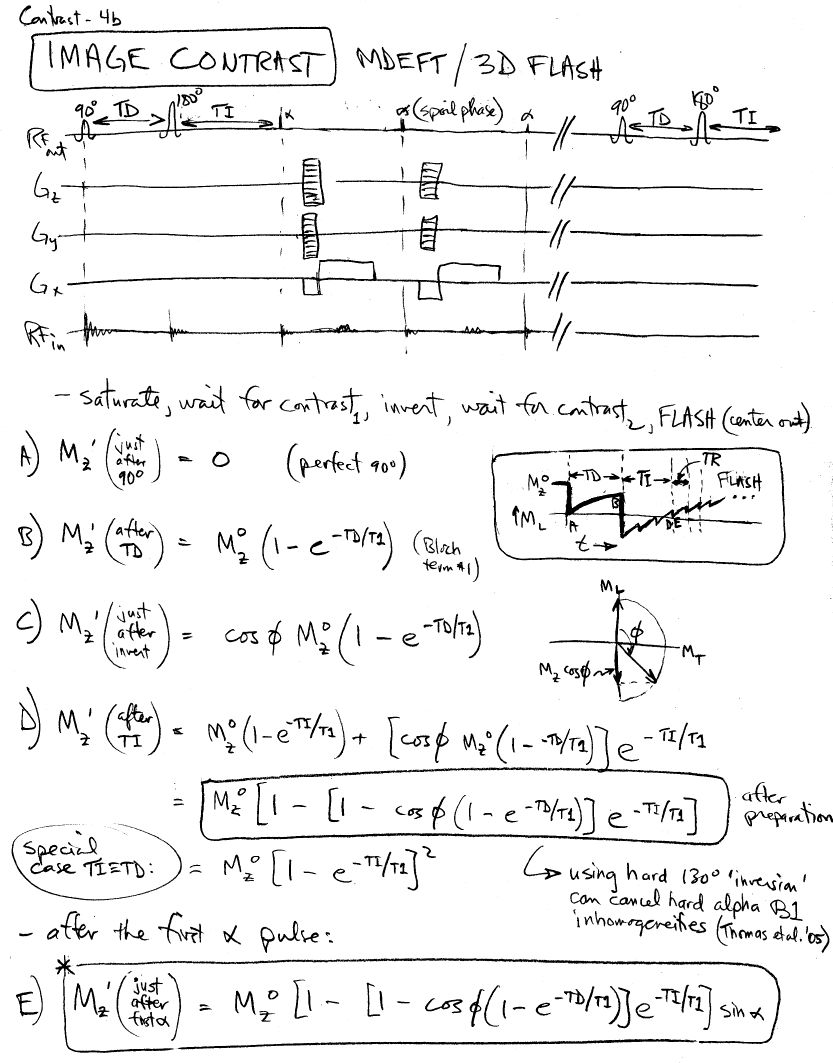 Contrast - 4b
IMAGE CONTRAST MDEFT / 3D FLASH
90° TD 180° TI α α (spoil phase) α // 90° TD 180° TI
RF out
Gz //
Gy //
Gx //
RF in //
- saturate, wait for contrast₁, invert, wait for contrast₂, FLASH (center out)
A) Mz' (just after 90°) = 0 (perfect 90°)
Mz° TD TI TR FLASH ...
↑ML A B D E
t →
B) Mz' (after TD) = Mz° (1 - e^-TD/T1) (Bloch term #1)
C) Mz' (just after invert) = cos φ Mz° (1 - e^-TD/T1)
ML
φ
MT
Mz cosφ
D) Mz' (after TI) = Mz° (1 - e^-TI/T1) + [cosφ Mz° (1 - -TD/T1)] e^-TI/T1
= Mz° [1 - [1 - cosφ (1 - e^-TD/T1)] e^-TI/T1] after preparation
special case TI≡TD: = Mz° [1 - e^-TI/T1]²
↳ using hard 130° 'inversion'
can cancel hard alpha B1
inhomogeneities (Thomas et al. '05)
- after the first α pulse:
* E) Mz' (just after first α) = Mz° [1 - [1 - cosφ (1 - e^-TD/T1)] e^-TI/T1] sin α